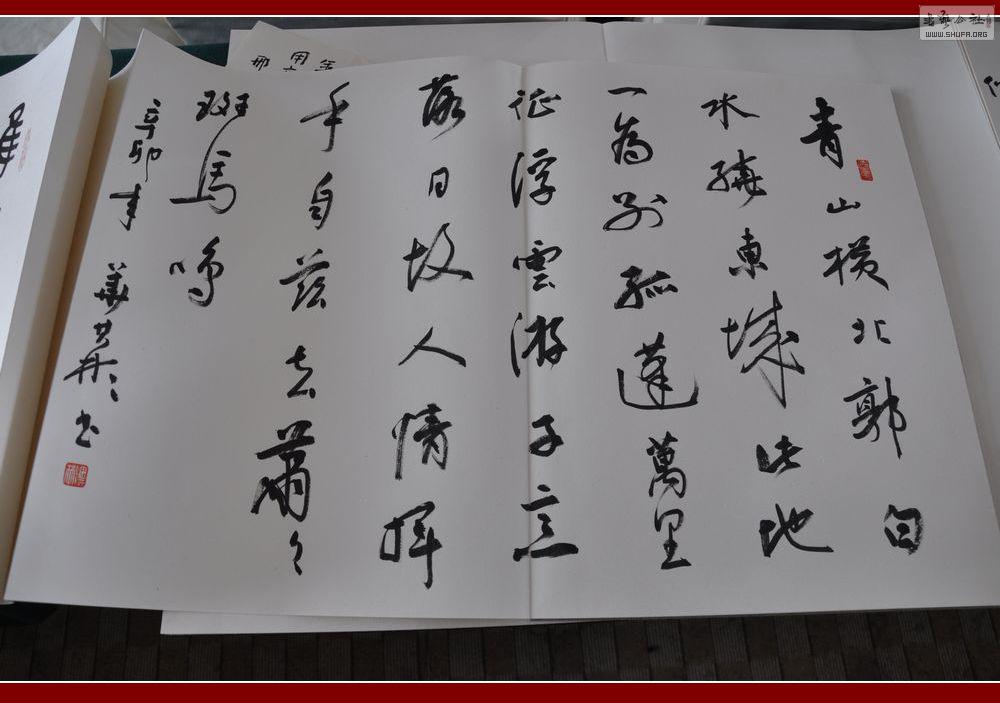 青山横北郭白
水繞東城此地
一為別孤蓬萬里
征浮雲游子意
落日故人情揮
手自兹去蕭々
斑馬鳴
辛卯年
書
書藝公社
WWW.SHUFA.ORG